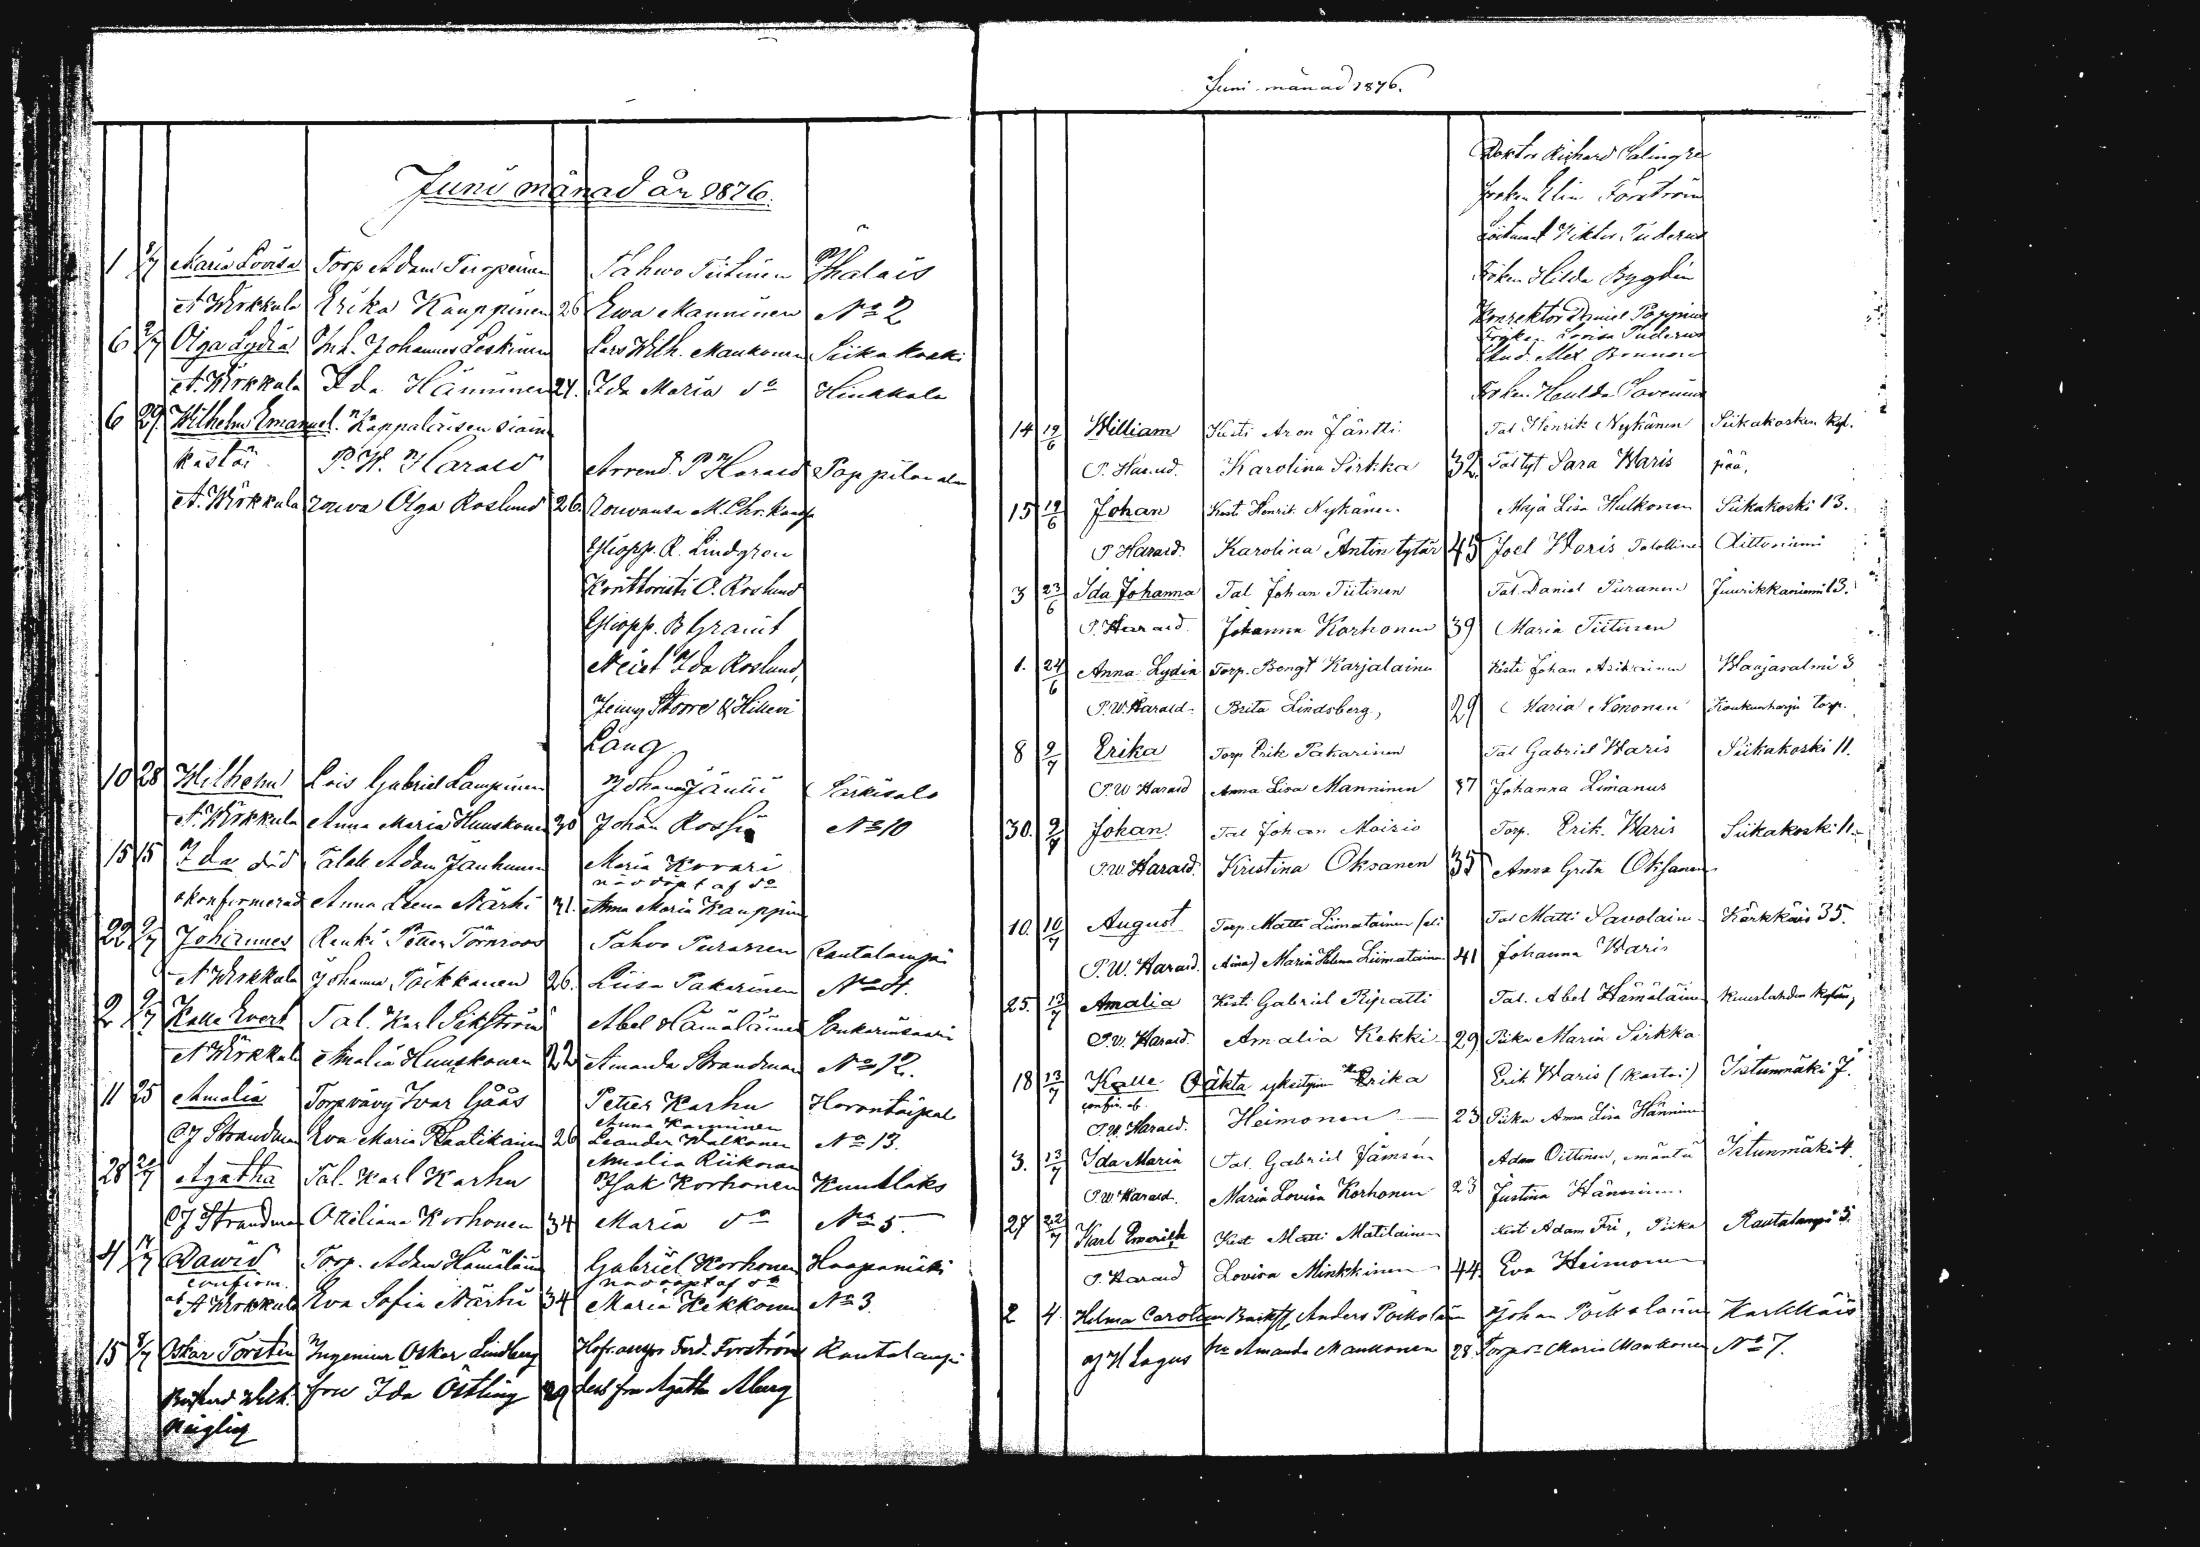 Juni månad år 1876.
1 8/7 Maria Lovisa Torp Adam Turpeinen Pahwo Tiitinen Ihalais
A Wirkkula Erika Kauppinen 26 Ewa Manninen No 2
6 2/7 Olga Lydia Inh. Johannes Leskinen Lars Wilh. Maukonen Siikakoski
A. Wirkkula Ida Hänninen 24. Ida Maria do Hinkkala
6 29 Wilhelm Emanuel.
kastoi P. W. Harald Arrend. P Harald
A. Wirkkula rouva Olga Roslund 26. Rouvansa M. Chr.
Yliopp. R. Lindgren
Konttoristi O. Roslund
Yliopp. B Granit
Neiet Ida Roslund,
Jenny Storre & Hillevi
Lång
10 28 Wilhelm Lois Gabriel Lampinen Johan Jäntti Särkisalo
A. Wirkkula Anna Maria Huuskonen 30 Johan Rossi No 10
15 15 Ida död Adam Janhunen Maria Kovari
nöddöpt af do
okonfirmerad Anna Leena Närhi 31. Anna Maria Kauppinen
22 9/7 Johannes Renki Petter Törnroos Pahvo Puranen Rautalampi
A Wirkkula Johanna Poikkanen 26. Liisa Pakarinen No 4.
2 9/7 Kalle Evert Tal. Karl Sikström Abel Hämäläinen Sonkarinsaari
A Wirkkula Amalia Huuskonen 22 Amanda Strandman No 12.
11 25 Amalia Torpvävy Ivar Gåås Petter Karhu Horontaipal
Anna
CJ Strandman Eva Maria Raatikainen 26 Leander Walkonen No 13.
Amalia Riikonen
28 2/7 Agatha Tal. Karl Karhu Isak Korhonen Kuutlaks
CJ Strandman Ottiliana Korhonen 34 Maria do No 5.
4 14/7 Dawid Torp. Adam Hämäläin Gabriel Korhonen Haapamäki
confirm. nöddöpt af do
af A Wirkkula Eva Sofia Närhi 34 Maria Kekkonen No 3.
15 8/7 Oskar Torsten Ingeniur Oskar Lindberg Ferd. Forström Rautalampi
Wilh. fru Ida Östling 29 dess fru Agatha Aberg
Juni månad 1876.
Doktor Richard Salingre
Fröken Elin Forström
Löitnant Viktor Tuderus
Fröken Hilda Bygdén
Konrektor Daniel Poppius
Fröken Lovisa Tuderus
Stud. Alex. Brunon
Fröken Houlda Savenius
14 19/6 William Kesti Aron Jäntti Tal Henrik Nykänen Siikakosken kyl.
P. Harald. Karolina Sirkka 32. Tal tyt Sara Waris pää,
15 19/6 Johan Kest Henrik Nykänen Maja Lisa Hulkonen Siikakoski 13.
P Harald. Karolina Antin tytär 45 Joel Waris Talollinen Aittoniemi
3 23/6 Ida Johanna Tal Johan Tiitinen Tal. Daniel Puranen Juurikkaniemi 13.
P. Harald. Johanna Korhonen 39 Maria Tiitinen
1. 24/6 Anna Lydia Torp. Bengt Karjalainen Kesti Johan Asikainen Waajasalmi 3
P.W. Harald. Brita Lindsberg, 29 Maria Nenonen Konkunharju torp.
8 9/7 Erika Torp Erik Pakarinen Tal Gabriel Waris Siikakoski 11.
P.W Harald Anna Lisa Manninen 37 Johanna Limanus
30. 9/7 Johan. Tal Johan Moisio Torp. Erik Waris Siikakoski 11.
P.W. Harald. Kristina Oksanen 35 Anna Greta Oksanen
10. 10/7 August Torp. Matti Liimatainen (eli Tal Matti Savolain Kärkkäis 35.
P.W. Harald. Aina) Maria Helena Liimatainen 41 Johanna Waris
25. 13/7 Amalia Kesti Gabriel Ripatti Tal. Abel Hämäläinen
P.W. Harald. Amalia Kekki 29. Piika Maria Sirkka
18 13/7 Kalle Oäkta yksityinen Erika Erik Waris (kastoi) Istunmäki 7.
confir. af
P.W. Harald. Heimonen 23 Piika Anna Lisa Hänninen
3. 13/7 Ida Maria Tal. Gabriel Jämsén Adam Oittinen, Istunmäki 4.
P.W. Harald. Maria Lovisa Korhonen 23 Justina Hänninen
27 22/7 Karl Emerik Kest Matti Matilainen Kest Adam Fri, Piika Rautalampi 5.
P. Harald Lovisa Minkkinen 44. Eva Heimonen
2 4. Helma Carolina Anders Poikolain Johan Poikolainen Karkkais
H Lagus hu Amanda Maukonen 28. Maria Maukonen No 7.